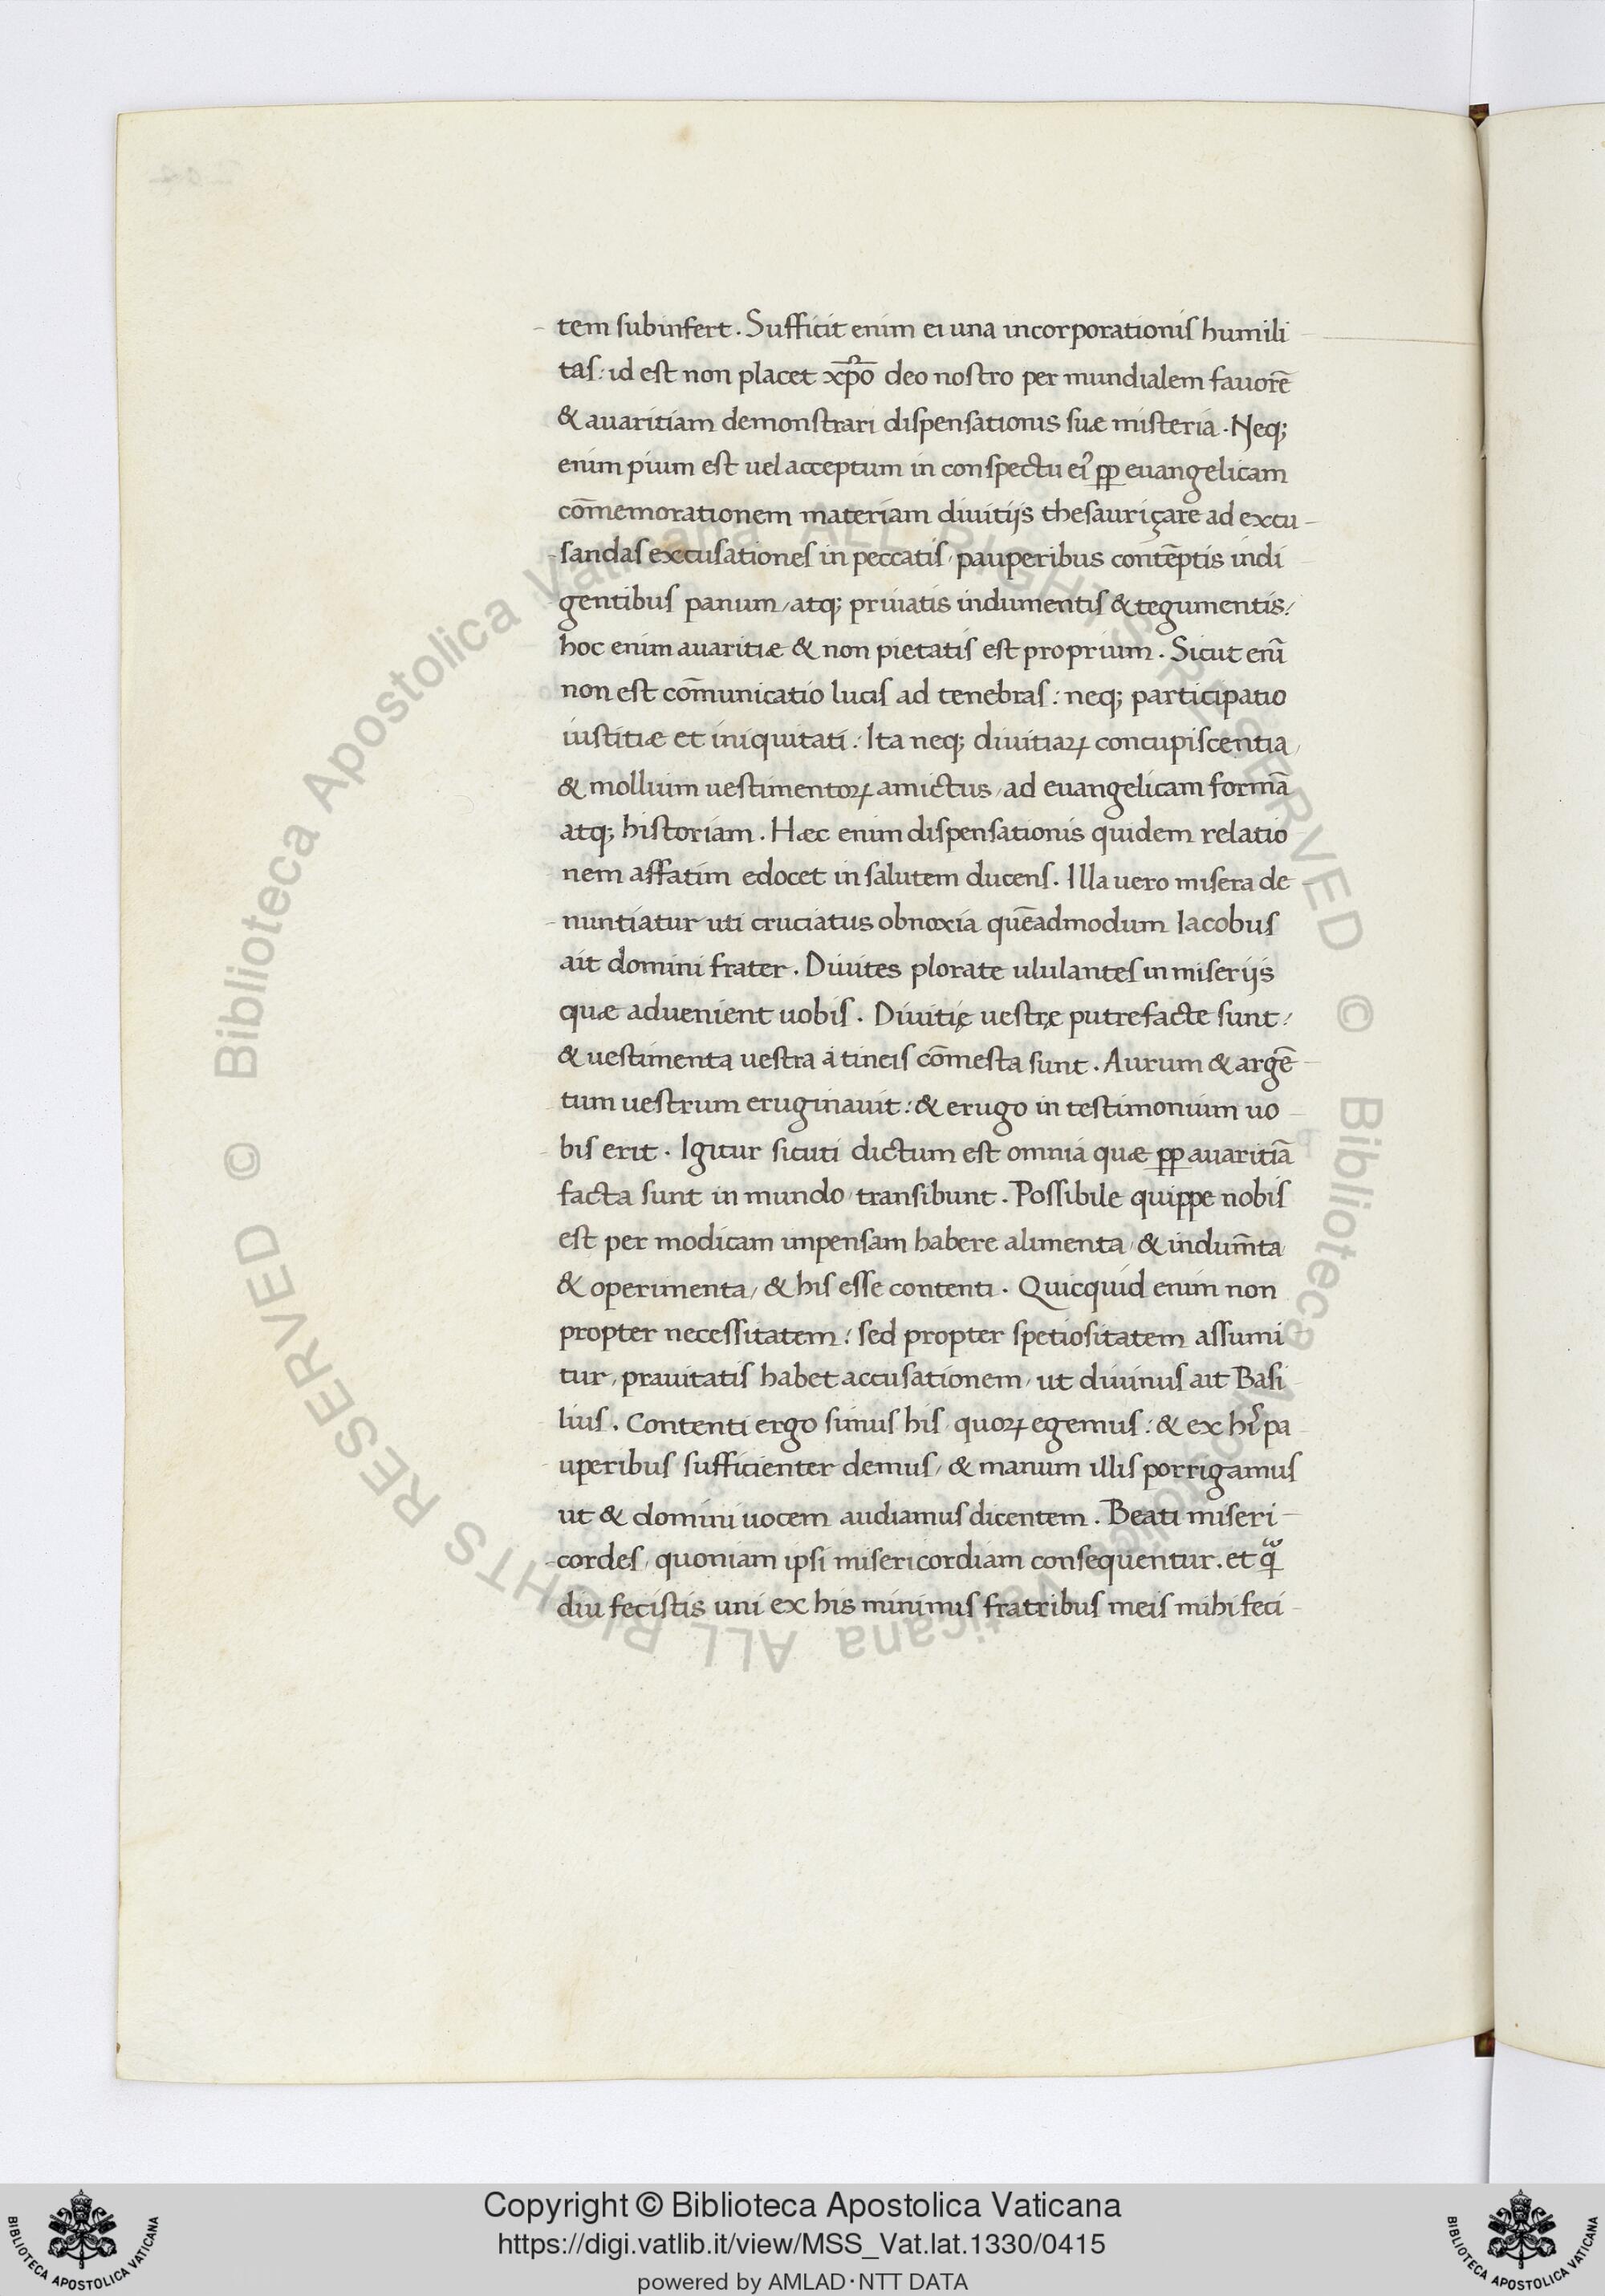 tem subinfert. Sufficit enim ei una incorporationis humili
tas: id est non placet xp̄o deo nostro per mundialem fauorē
& auaritiam demonstrari dispensationis suæ misteria. Neq;
enim pium est uel acceptum in conspectu ei᾽ ꝓꝓ euangelicam
cōmemorationem materiam diuitijs thesauriçare ad excu-
-sandas excusationes in peccatis, pauperibus contēptis indi
gentibus panum, atq; priuatis indumentis & tegumentis:
hoc enim auaritiæ & non pietatis est proprium. Sicut eni̅
non est cōmunicatio lucis ad tenebras: neq; participatio
iustitiæ et iniquitati: Ita neq; diuitiaꝝ concupiscentia,
& mollium uestimentoꝝ amictus, ad euangelicam formā
atq; historiam. Hæc enim dispensationis quidem relatio
nem affatim edocet in salutem ducens. Illa uero misera de
-nuntiatur uti cruciatus obnoxia quēadmodum Iacobus
ait domini frater. Diuites plorate ululantes in miserijs
quæ aduenient uobis. Diuitię uestrę putrefacte sunt:
& uestimenta uestra á tineis cōmesta sunt. Aurum & argē-
tum uestrum eruginauit: & erugo in testimonium uo
bis erit. Igitur sicuti dictum est omnia quæ ꝓꝓ auaritiā
facta sunt in mundo transibunt. Possibile quippe nobis
est per modicam impensam habere alimenta, & indum̄ta
& operimenta, & his esse contenti. Quicquid enim non
propter necessitatem: sed propter spetiositatem assumi
tur, prauitatis habet accusationem, ut diuinus ait Basi
lius. Contenti ergo simus his quoꝝ egemus: & ex hi᾽s pa
uperibus sufficienter demus, & manum illis porrigamus
ut & domini uocem audiamus dicentem. Beati miseri-
-cordes, quoniam ipsi misericordiam consequentur. et qͣ̄
diu fecistis uni ex his minimis fratribus meis mihi feci
© Biblioteca Apostolica Vaticana ALL RIGHTS RESERVED © Biblioteca Apostolica Vaticana ALL RIGHTS RESERVED
Copyright © Biblioteca Apostolica Vaticana
https://digi.vatlib.it/view/MSS_Vat.lat.1330/0415
powered by AMLAD·NTT DATA
BIBLIOTECA APOSTOLICA VATICANA
BIBLIOTECA APOSTOLICA VATICANA